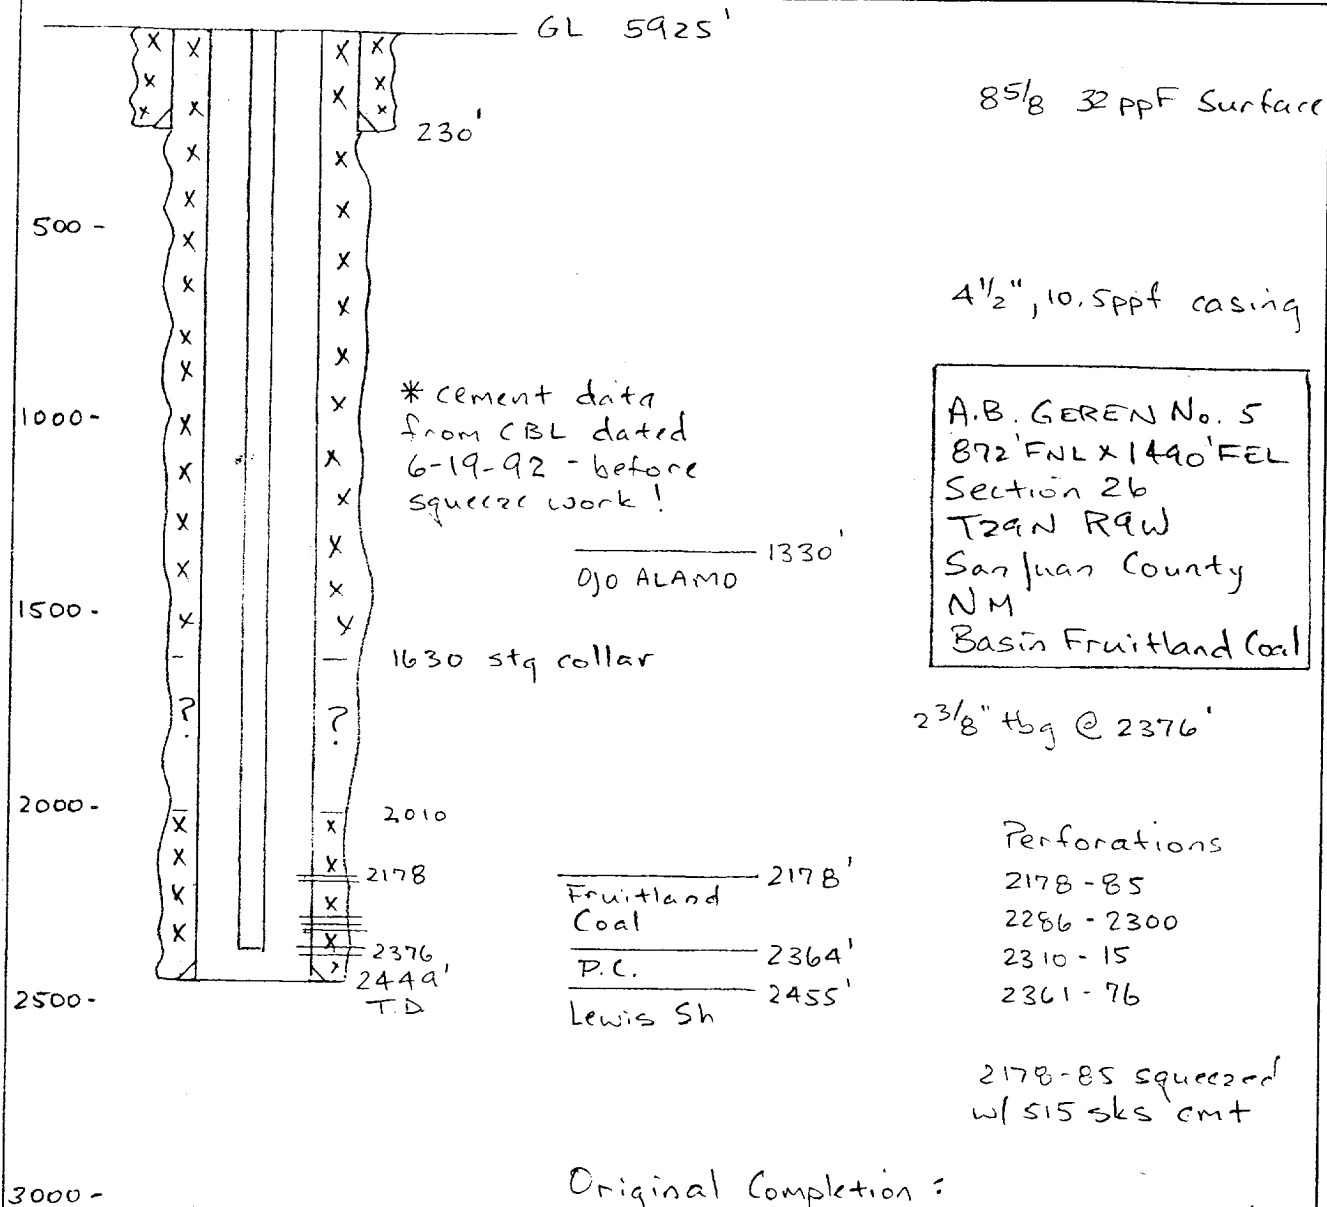 GL 5925'
8 5/8 32 ppF Surface
230'
500 -
4 1/2", 10.5ppf casing
* cement data
from CBL dated
6-19-92 - before
squeeze work!
1000 -
A.B. GEREN No. 5
872' FNL X 1490' FEL
Section 26
T29N R9W
San Juan County
NM
Basin Fruitland Coal
1330'
OJO ALAMO
1500 -
1630 stg collar
? ?
2 3/8" tbg @ 2376'
2000 -
2010
2178
2376
2449'
T.D.
2178'
Fruitland
Coal
2364'
P.C.
2455'
Lewis Sh
Perforations
2178-85
2286-2300
2310-15
2361-76
2500 -
2178-85 squeezed
w/ 515 sks cmt
Original Completion:
3000 -